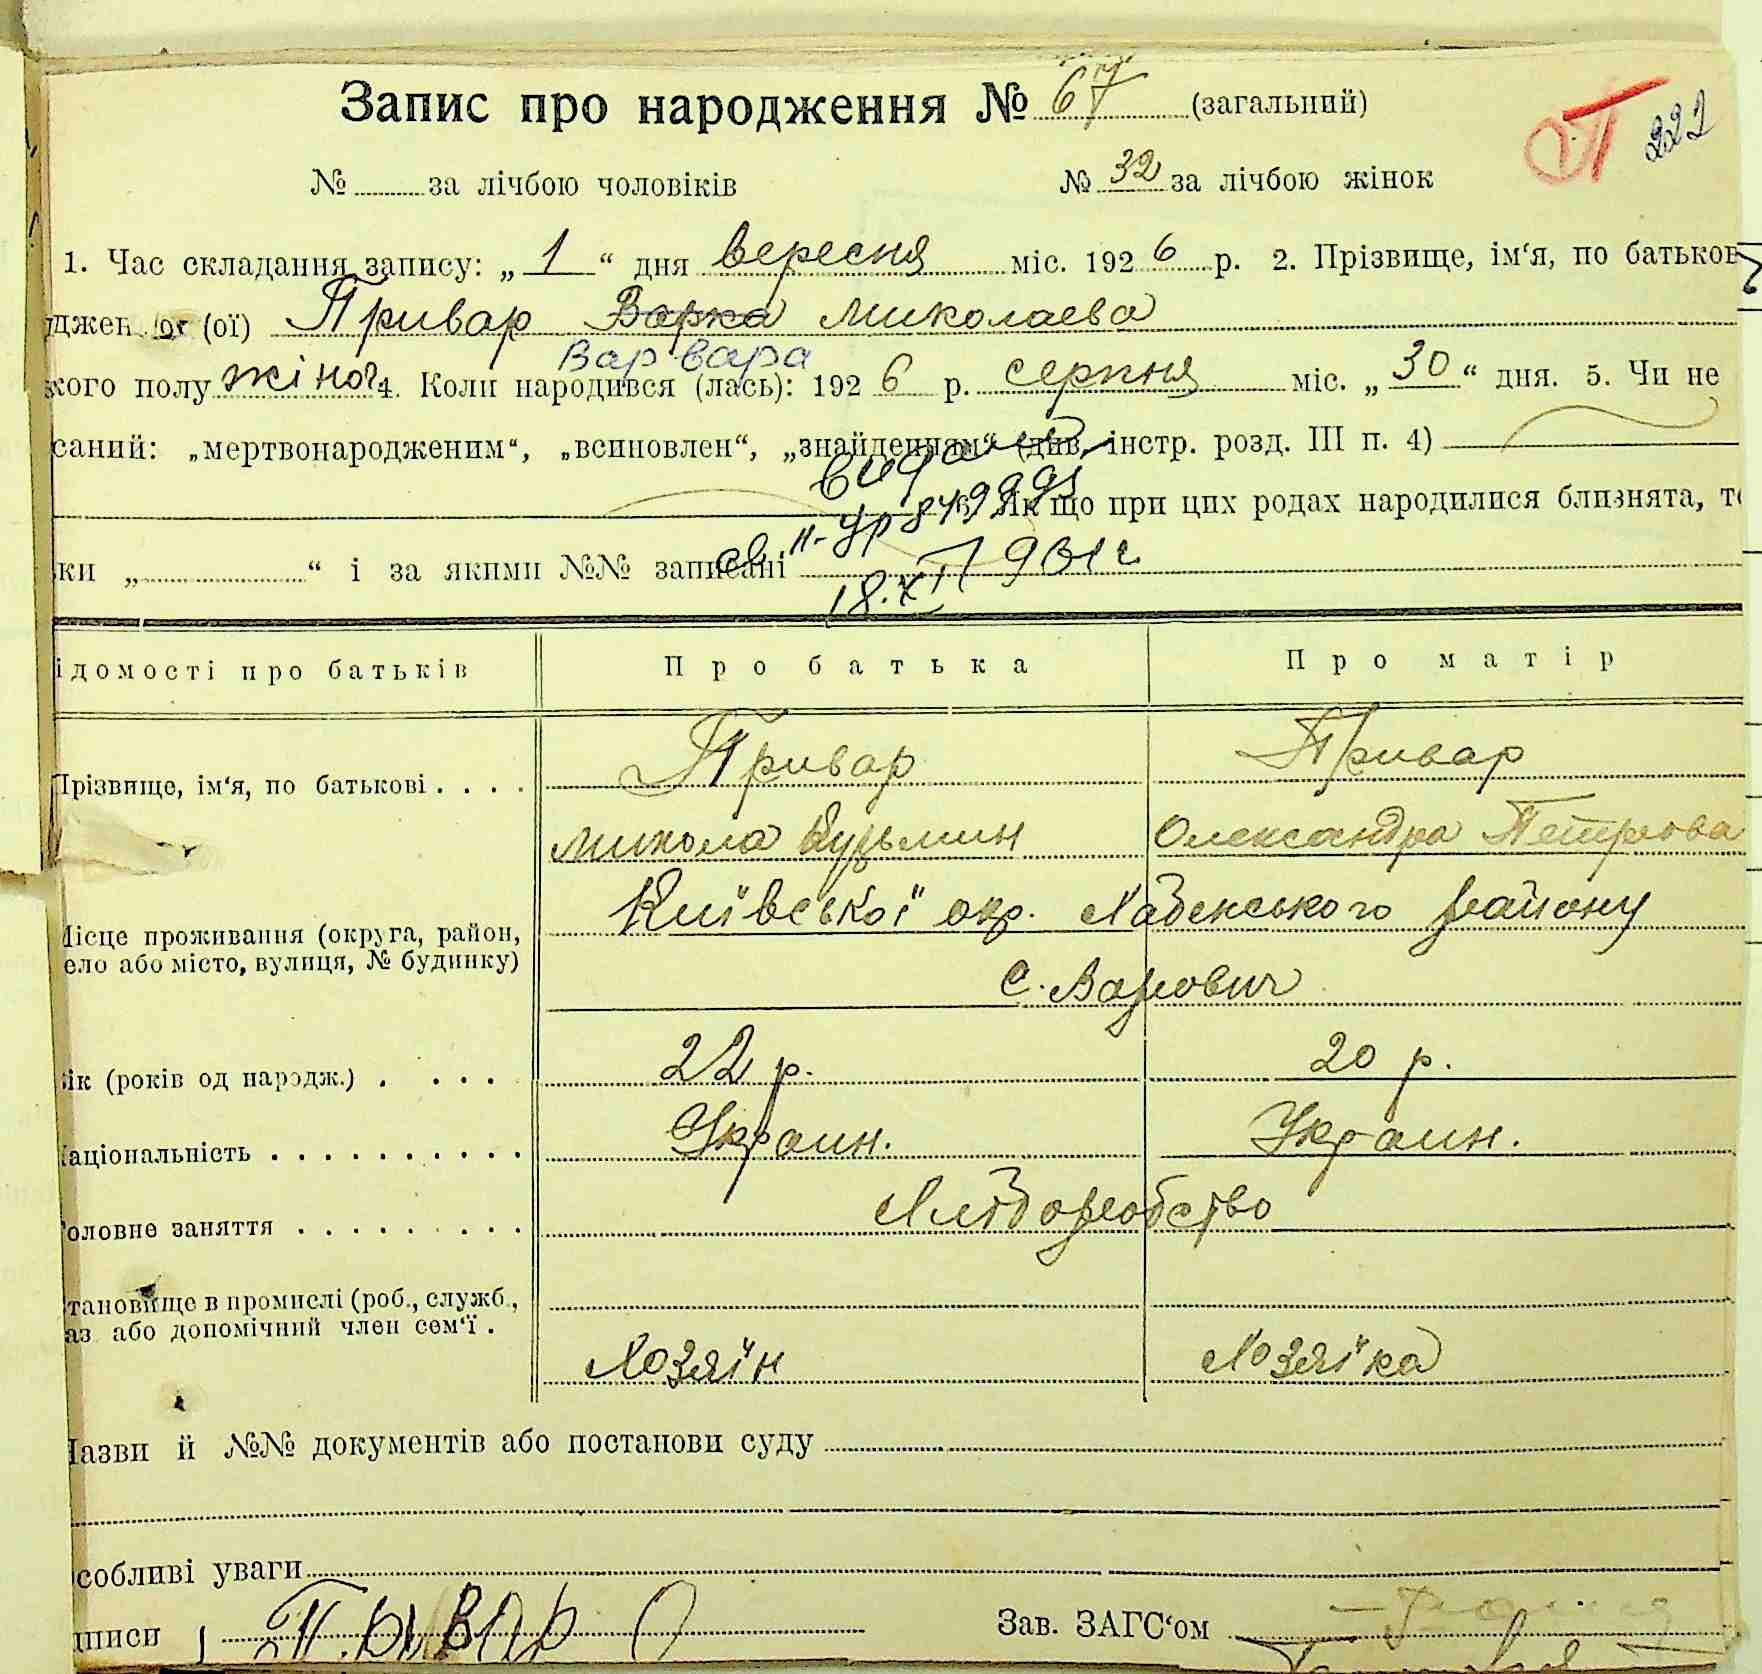 Запис про народження № 67 (загальний)
222
№ за лічбою чоловіків № 32 за лічбою жінок
1. Час складання запису: „ 1 “ дня вересня міс. 1926 р. 2. Прізвище, ім‘я, по батьков
джен (ої) Привар Варка Миколаева
Варвара
кого полу жіноч 4. Коли народився (лась): 1926 р. серпня міс. „ 30 “ дня. 5. Чи не
саний: „мертвонародженим“, „всиновлен“, „знайденням“ (див. інстр. розд. III п. 4)
6. Якщо при цих родах народилися близнята, т
ки „ “ і за якими №№ записані
18.XII
ідомості про батьків Про батька Про матір
Прізвище, ім‘я, по батькові Привар Привар
Микола Кузьмин Олександра Петрова
Місце проживання (округа, район, Київської окр. Хабенського району
ело або місто, вулиця, № будинку)
с. Варович
ік (років од народж.) 22 р. 20 р.
аціональність Украин. Украин.
оловне заняття Хлібаробство
тановище в промислі (роб., служб.,
аз або допомічний член сем‘ї .
Хозяїн Хозяїка
Назви й №№ документів або постанови суду
собливі уваги
писи Зав. ЗАГС‘ом